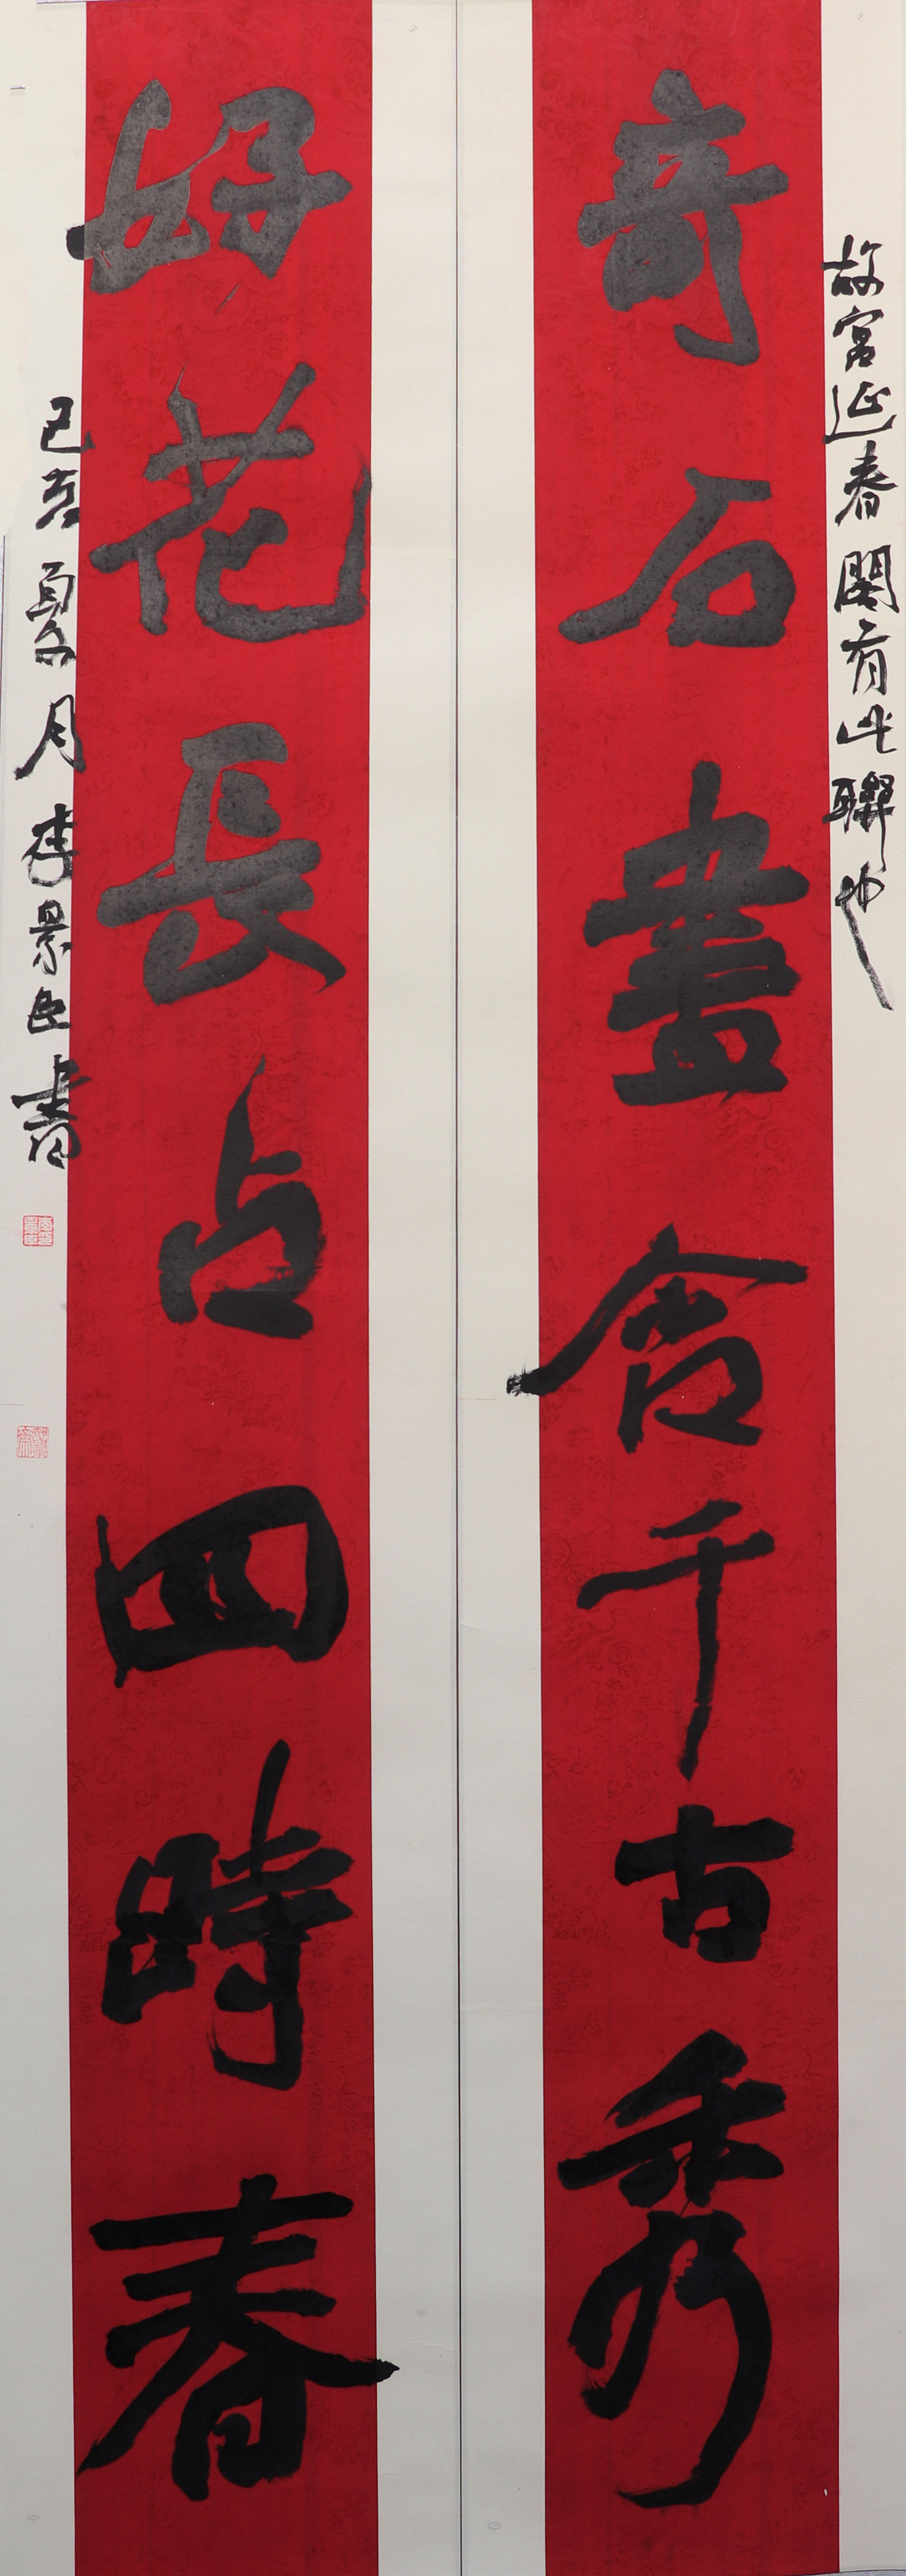 故宫延春閣有此聯也
奇石盡含千古秀
好花長占四時春
己亥夏月李景臣書